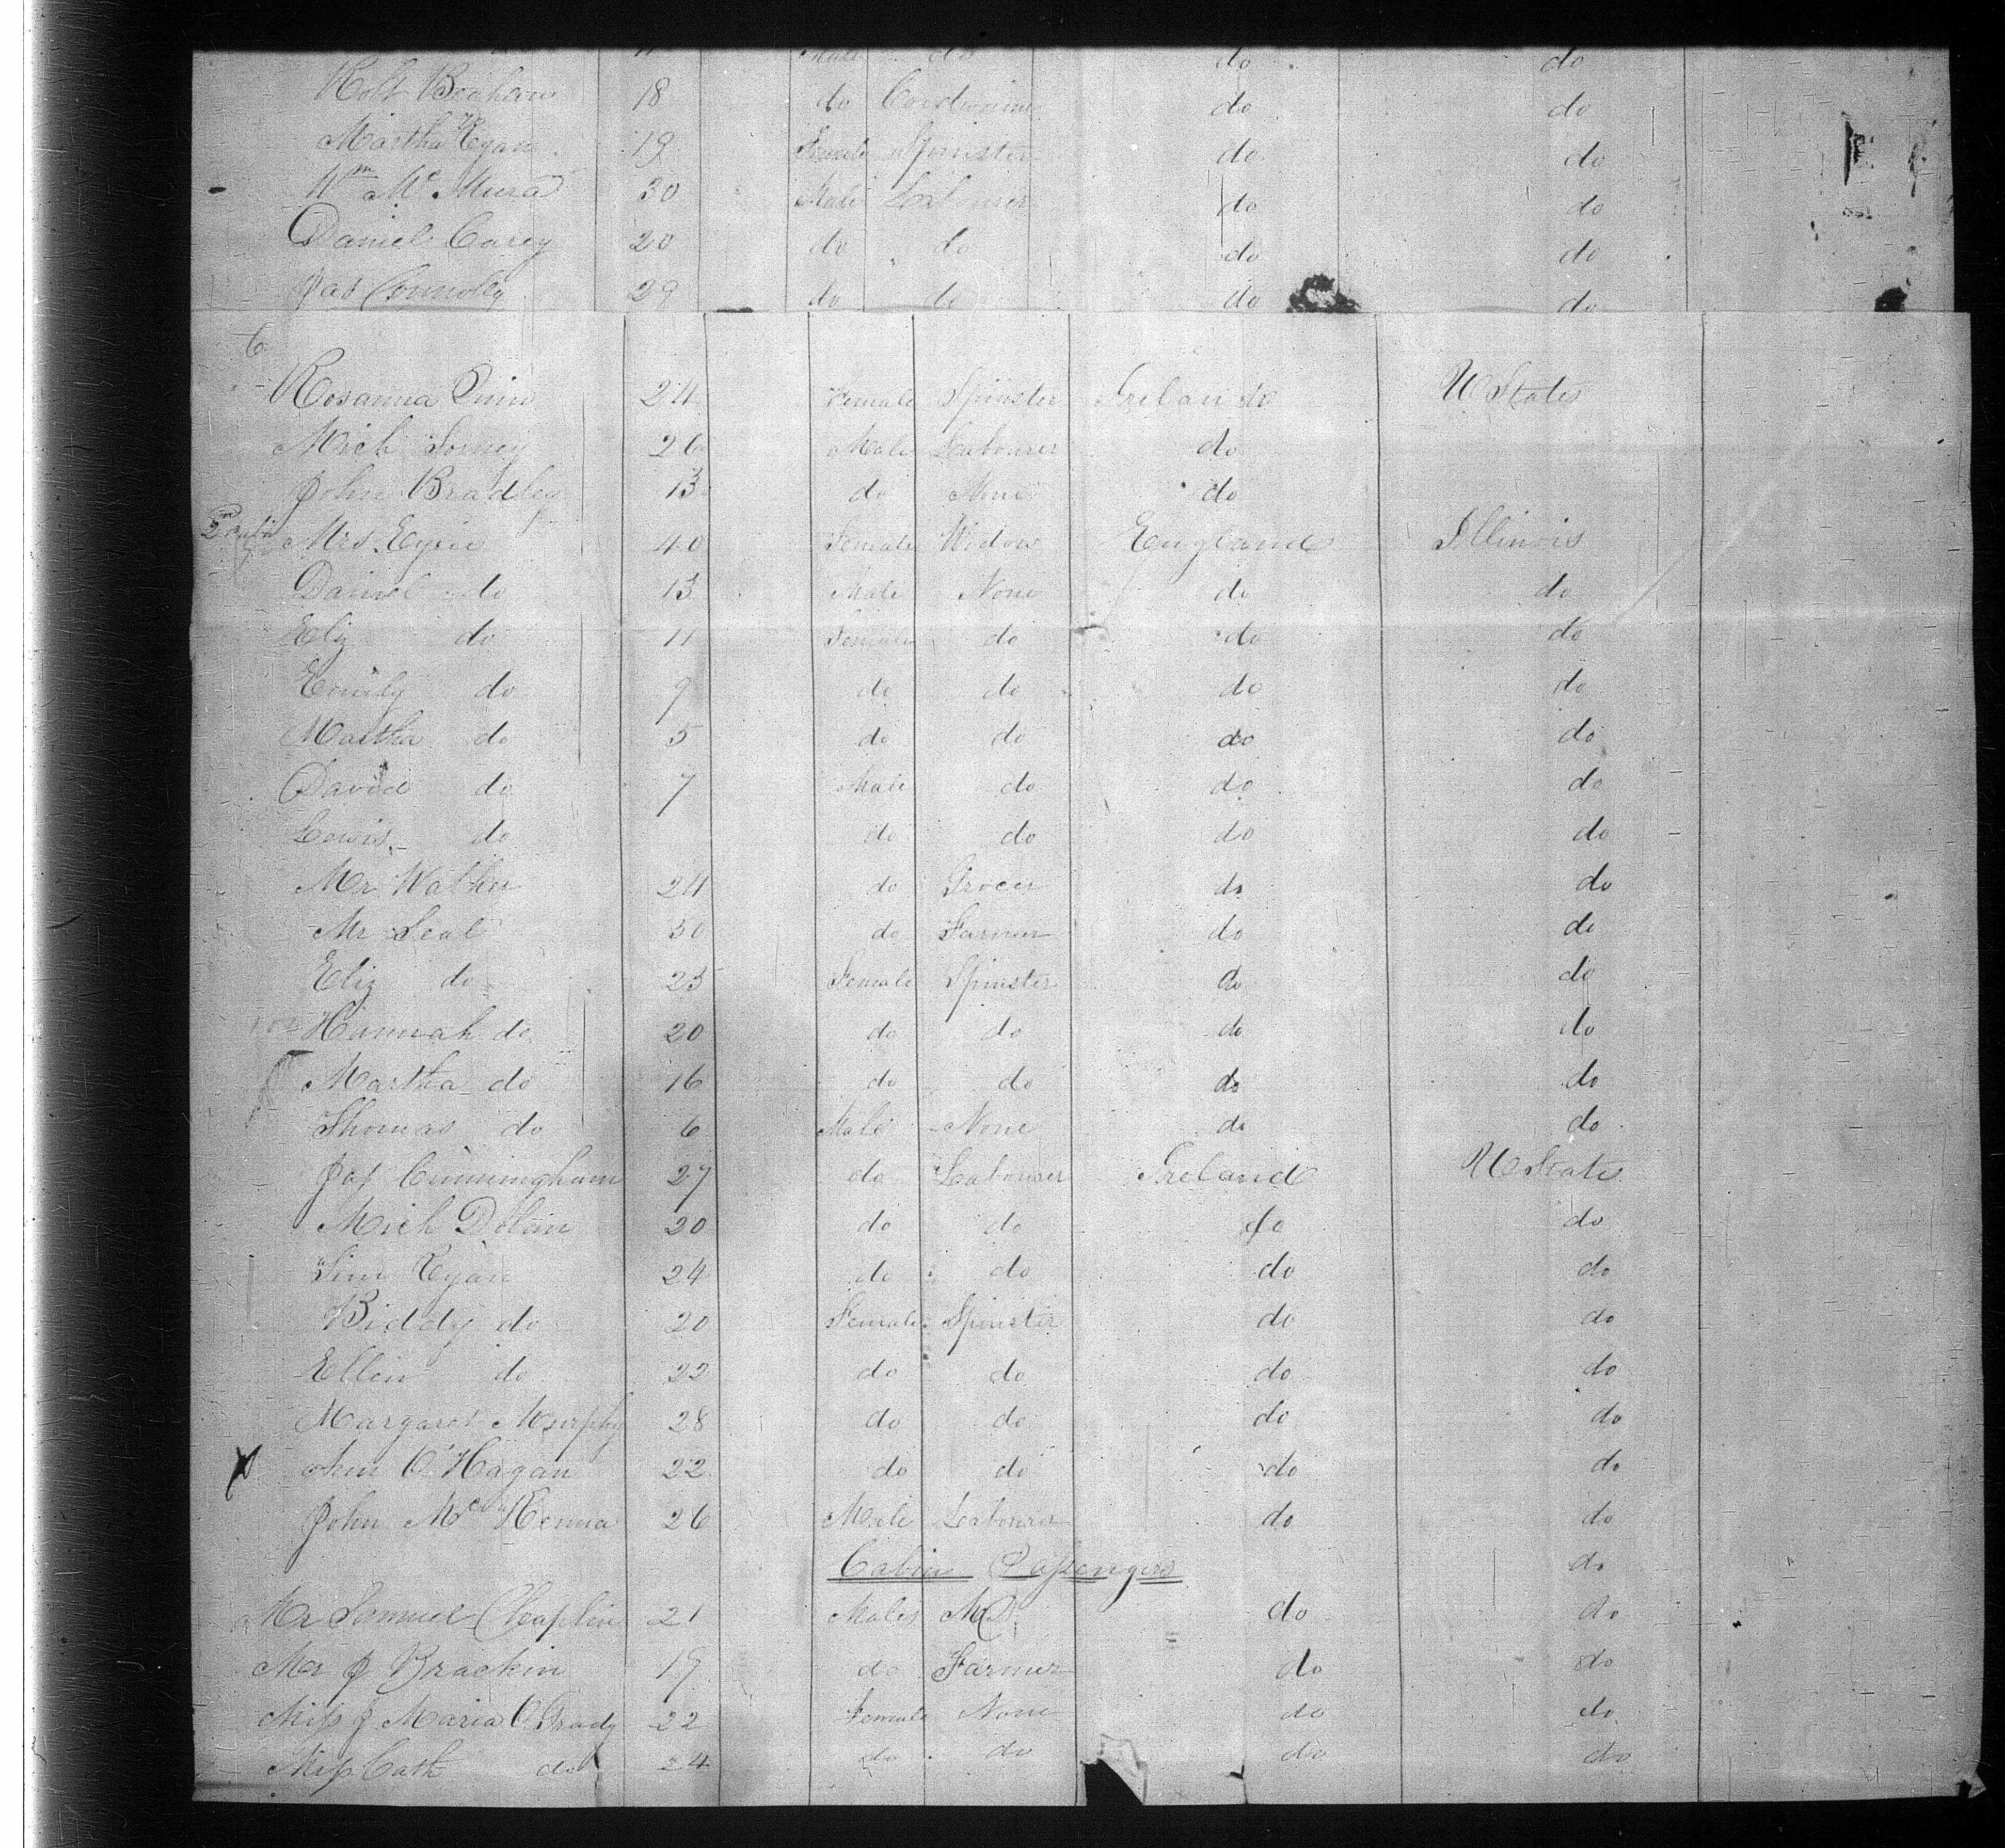 Male do do do
Robt 18 do do do
Martha Ryan 19 Female Spinster do do
Wm Mc 30 Male Labourer do do
Daniel Carey 20 do do do do
Jas Connolly 29 do do do do
6
Rosanna Quin 24 Female Spinster Ireland do U States
Mich 26 Male Labourer do
John Bradley 13 do None do
2nd Cabin Mrs. Eyre 40 Female Widow England Illinois
Daniel do 13 Male None do do
Eliz do 11 Female do do do
Emily do 9 do do do do
Martha do 5 do do do do
David do 7 Male do do do
Lewis do do do do do
Mr 24 do Grocer do do
Mr Seal 50 do Farmer do do
Eliz do 25 Female Spinster do do
Hannah do 20 do do do do
Martha do 16 do do do do
Thomas do 6 Male None do do
Jas Cunningham 27 do Labourer Ireland U States
Mich Dolan 20 do do do do
Tim Ryan 24 do do do do
Biddy do 20 Female Spinster do do
Ellen do 22 do do do do
Margaret Murphy 28 do do do do
Ann O'Hagan 22 do do do do
John Mc Kenna 26 Male Labourer do do
Cabin Passengers do
Mr Samuel Chaplin 21 Males MD do do
Mr J Brackin 19 do Farmer do do
Miss J Maria O Grady 22 Female None do do
Miss Cath do 24 do do do do